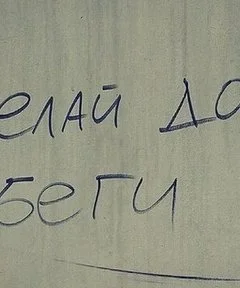 елай до
беги